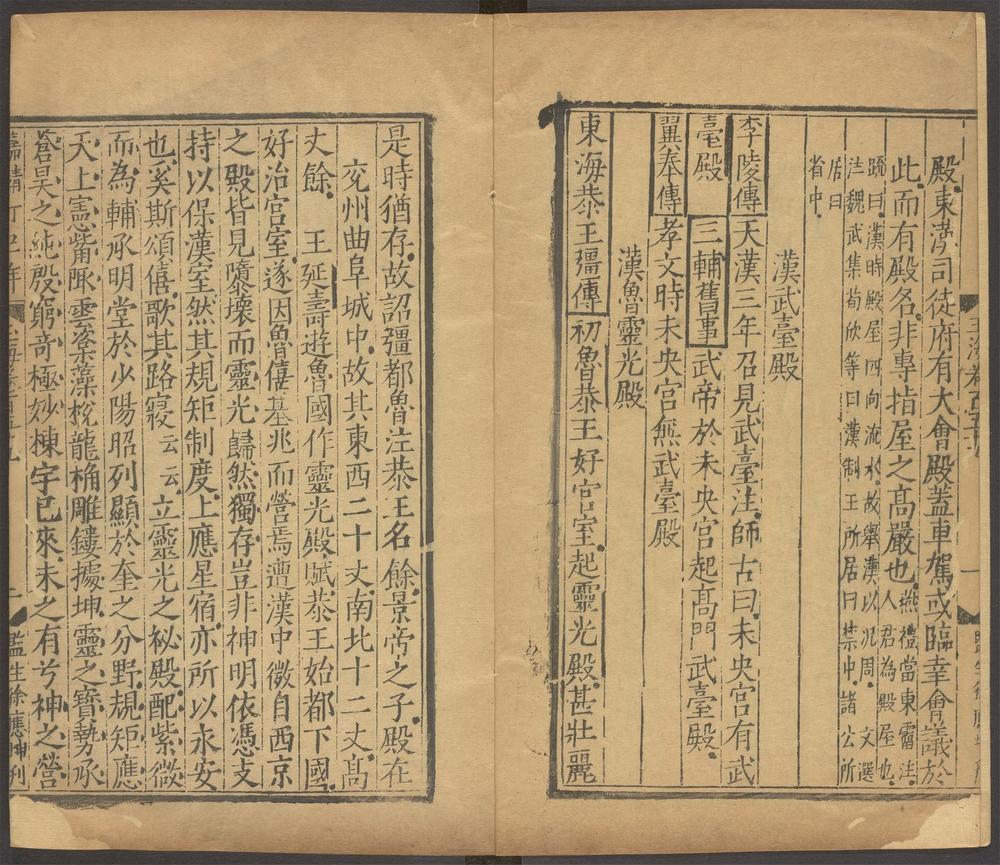 殿東漢司徒府有大會殿蓋車駕或臨幸會議於
此而有殿名非專指屋之高嚴也燕禮當東霤注人君為殿屋也
疏曰漢時殿屋四向流水故舉漢以况周文選
注魏武集荀欣等曰漢制王所居曰禁中諸公所
居曰
省中
漢武臺殿
李陵傳天漢三年召見武臺注師古曰未央宮有武
臺殿三輔舊事武帝於未央宮起高門武臺殿
翼奉傳孝文時未央宮無武臺殿
漢魯靈光殿
東海恭王彊傳初魯恭王好宮室起靈光殿甚壯麗
是時猶存故詔彊都魯注恭王名餘景帝之子殿在
兖州曲阜城中故其東西二十丈南北十二丈高
丈餘王延壽遊魯國作靈光殿賦恭王始都下國
好治宮室遂因魯僖基兆而營焉遭漢中微自西京
之殿皆見隳壞而靈光巋然獨存豈非神明依憑支
持以保漢室然其規矩制度上應星宿亦所以永安
也奚斯頌僖歌其路寢云云立靈光之秘殿配紫微
而為輔承明堂於少陽昭列顯於奎之分野規矩應
天上憲觜陬雲楶藻梲龍桷雕鏤據坤靈之寶勢承
蒼昊之純殷窮奇極妙棟宇已來未之有兮神之營
嘉靖丁巳年
監生徐應坤刊